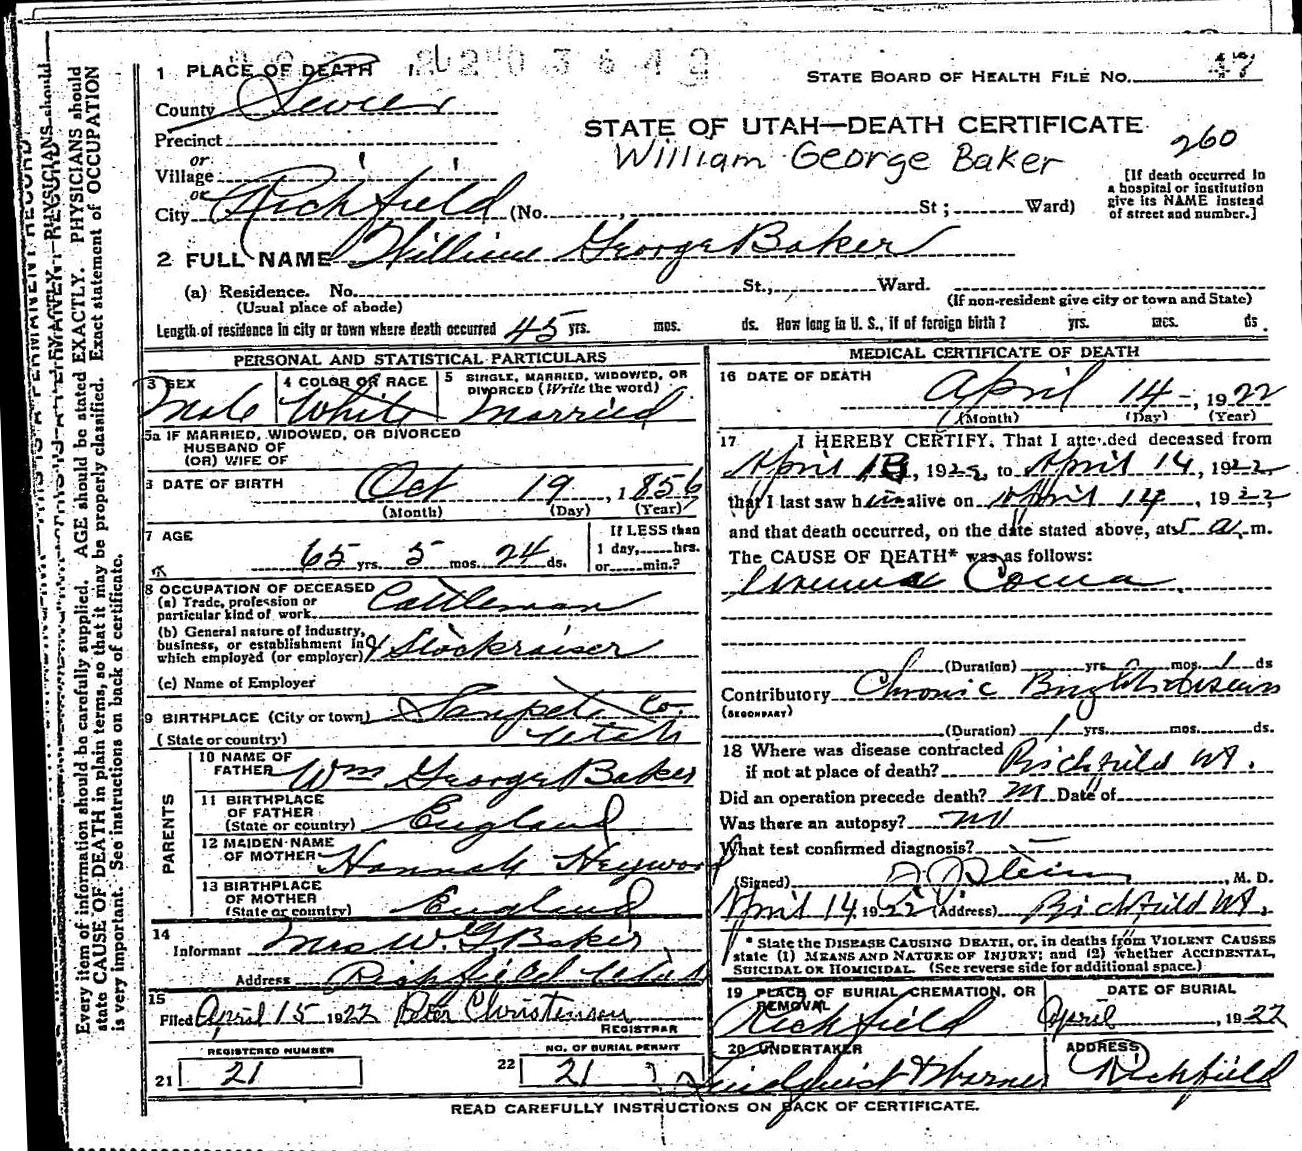 1 PLACE OF DEATH
STATE BOARD OF HEALTH FILE NO. 47
County Sevier
STATE OF UTAH—DEATH CERTIFICATE
Precinct
William George Baker 260
or
Village
or
City Richfield (No. St; Ward)
[If death occurred in
a hospital or institution
give its NAME instead
of street and number.]
2 FULL NAME William George Baker
(a) Residence. No. St., Ward.
(Usual place of abode) (If non-resident give city or town and State)
Length of residence in city or town where death occurred 45 yrs. mos. ds. How long in U. S., if of foreign birth? yrs. mos. ds.
PERSONAL AND STATISTICAL PARTICULARS
3 SEX
Male
4 COLOR OR RACE
White
5 SINGLE, MARRIED, WIDOWED, OR
DIVORCED (Write the word)
Married
5a IF MARRIED, WIDOWED, OR DIVORCED
HUSBAND OF
(OR) WIFE OF
6 DATE OF BIRTH Oct 19, 1856
(Month) (Day) (Year)
7 AGE
65 yrs. 5 mos. 24 ds.
If LESS than
1 day, hrs.
or min.?
8 OCCUPATION OF DECEASED
(a) Trade, profession or
particular kind of work Cattleman
(b) General nature of industry,
business, or establishment in
which employed (or employer) & Stockraiser
(c) Name of Employer
9 BIRTHPLACE (City or town) Sanpete Co.
(State or country) Utah
PARENTS
10 NAME OF
FATHER Wm George Baker
11 BIRTHPLACE
OF FATHER
(State or country) England
12 MAIDEN NAME
OF MOTHER Hannah Heywood
13 BIRTHPLACE
OF MOTHER
(State or country) England
14
Informant Mrs W. G. Baker
Address Richfield Utah
15
Filed April 15 1922 Peter Christensen
REGISTRAR
REGISTERED NUMBER
21 21
NO. OF BURIAL PERMIT
22 21
MEDICAL CERTIFICATE OF DEATH
16 DATE OF DEATH
April 14, 1922
(Month) (Day) (Year)
17 I HEREBY CERTIFY, That I attended deceased from
April 13, 1922 to April 14, 1922
that I last saw him alive on April 14, 1922,
and that death occurred, on the date stated above, at 5 a. m.
The CAUSE OF DEATH* was as follows:
Uremic Coma
(Duration) yrs. mos. 1 ds
Contributory Chronic Brights disease
(SECONDARY)
(Duration) 1 yrs. mos. ds.
18 Where was disease contracted
if not at place of death? Richfield Ut.
Did an operation precede death? no Date of
Was there an autopsy? no
What test confirmed diagnosis?
(Signed) , M. D.
April 14 1922 (Address) Richfield Ut.
* State the DISEASE CAUSING DEATH, or, in deaths from VIOLENT CAUSES
state (1) MEANS AND NATURE OF INJURY; and (2) whether ACCIDENTAL,
SUICIDAL OR HOMICIDAL. (See reverse side for additional space.)
19 PLACE OF BURIAL, CREMATION, OR
REMOVAL
Richfield
DATE OF BURIAL
April, 1922
20 UNDERTAKER
Lindquist & Warner
ADDRESS
Richfield
READ CAREFULLY INSTRUCTIONS ON BACK OF CERTIFICATE.
Every item of information should be carefully supplied. AGE should be stated EXACTLY. PHYSICIANS should
state CAUSE OF DEATH in plain terms, so that it may be properly classified. Exact statement of OCCUPATION
is very important. See instructions on back of certificate.